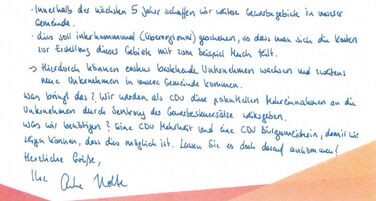 · Innerhalb der nächsten 5 Jahre schaffen wir weitere Gewerbegebiete in unserer
Gemeinde.
· dies soll interkommunal (überregional) geschehen, so dass man sich die Kosten
zur Erstellung dieses Gebiets mit zum Beispiel Huch teilt.
→ Hierdurch können erstens bestehende Unternehmen wachsen und zweitens
neue Unternehmen in unsere Gemeinde kommen.
Was bringt das? Wir werden als CDU diese potentiellen Mehreinnahmen an die
Unternehmen durch Senkung des Gewerbesteuersatzes weitergeben.
Was wir benötigen? Eine CDU Mehrheit und eine CDU Bürgermeisterin, damit wir
zeigen können, dass dies möglich ist. Lassen Sie es doch darauf ankommen!
Herzliche Grüße,
Ihre Nolte